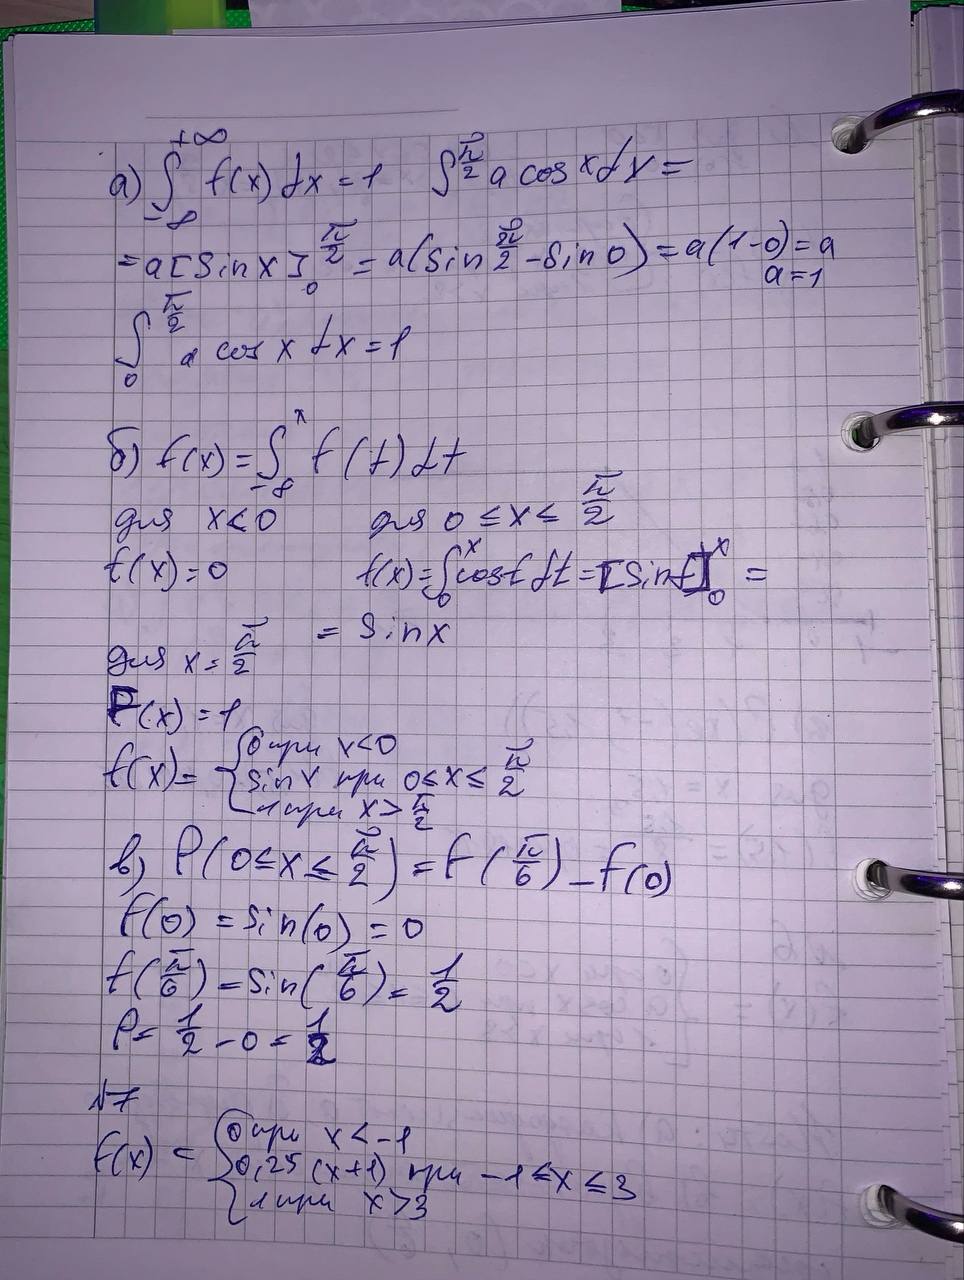 а) ∫₋∞^+∞ f(x)dx = 1   ∫^(π/2) a cos x dx =
= a [sin x]₀^(π/2) = a(sin π/2 - sin 0) = a(1-0) = a
a = 1
∫₀^(π/2) a cos x dx = 1
б) f(x) = ∫₋∞^x f(t)dt
для x<0   для 0 ≤ x ≤ π/2
f(x) = 0   f(x) = ∫₀^x cos t dt = [sin t]₀^x =
= sin x
для x = π/2
F(x) = 1
f(x) = { 0 при x<0
sin x при 0 ≤ x ≤ π/2
1 при x > π/2
в) P(0 ≤ x ≤ π/2) = f(π/6) - f(0)
f(0) = sin(0) = 0
f(π/6) = sin(π/6) = 1/2
P = 1/2 - 0 = 1/2
№7
f(x) = { 0 при x < -1
0,25 (x+1) при -1 ≤ x ≤ 3
1 при x > 3